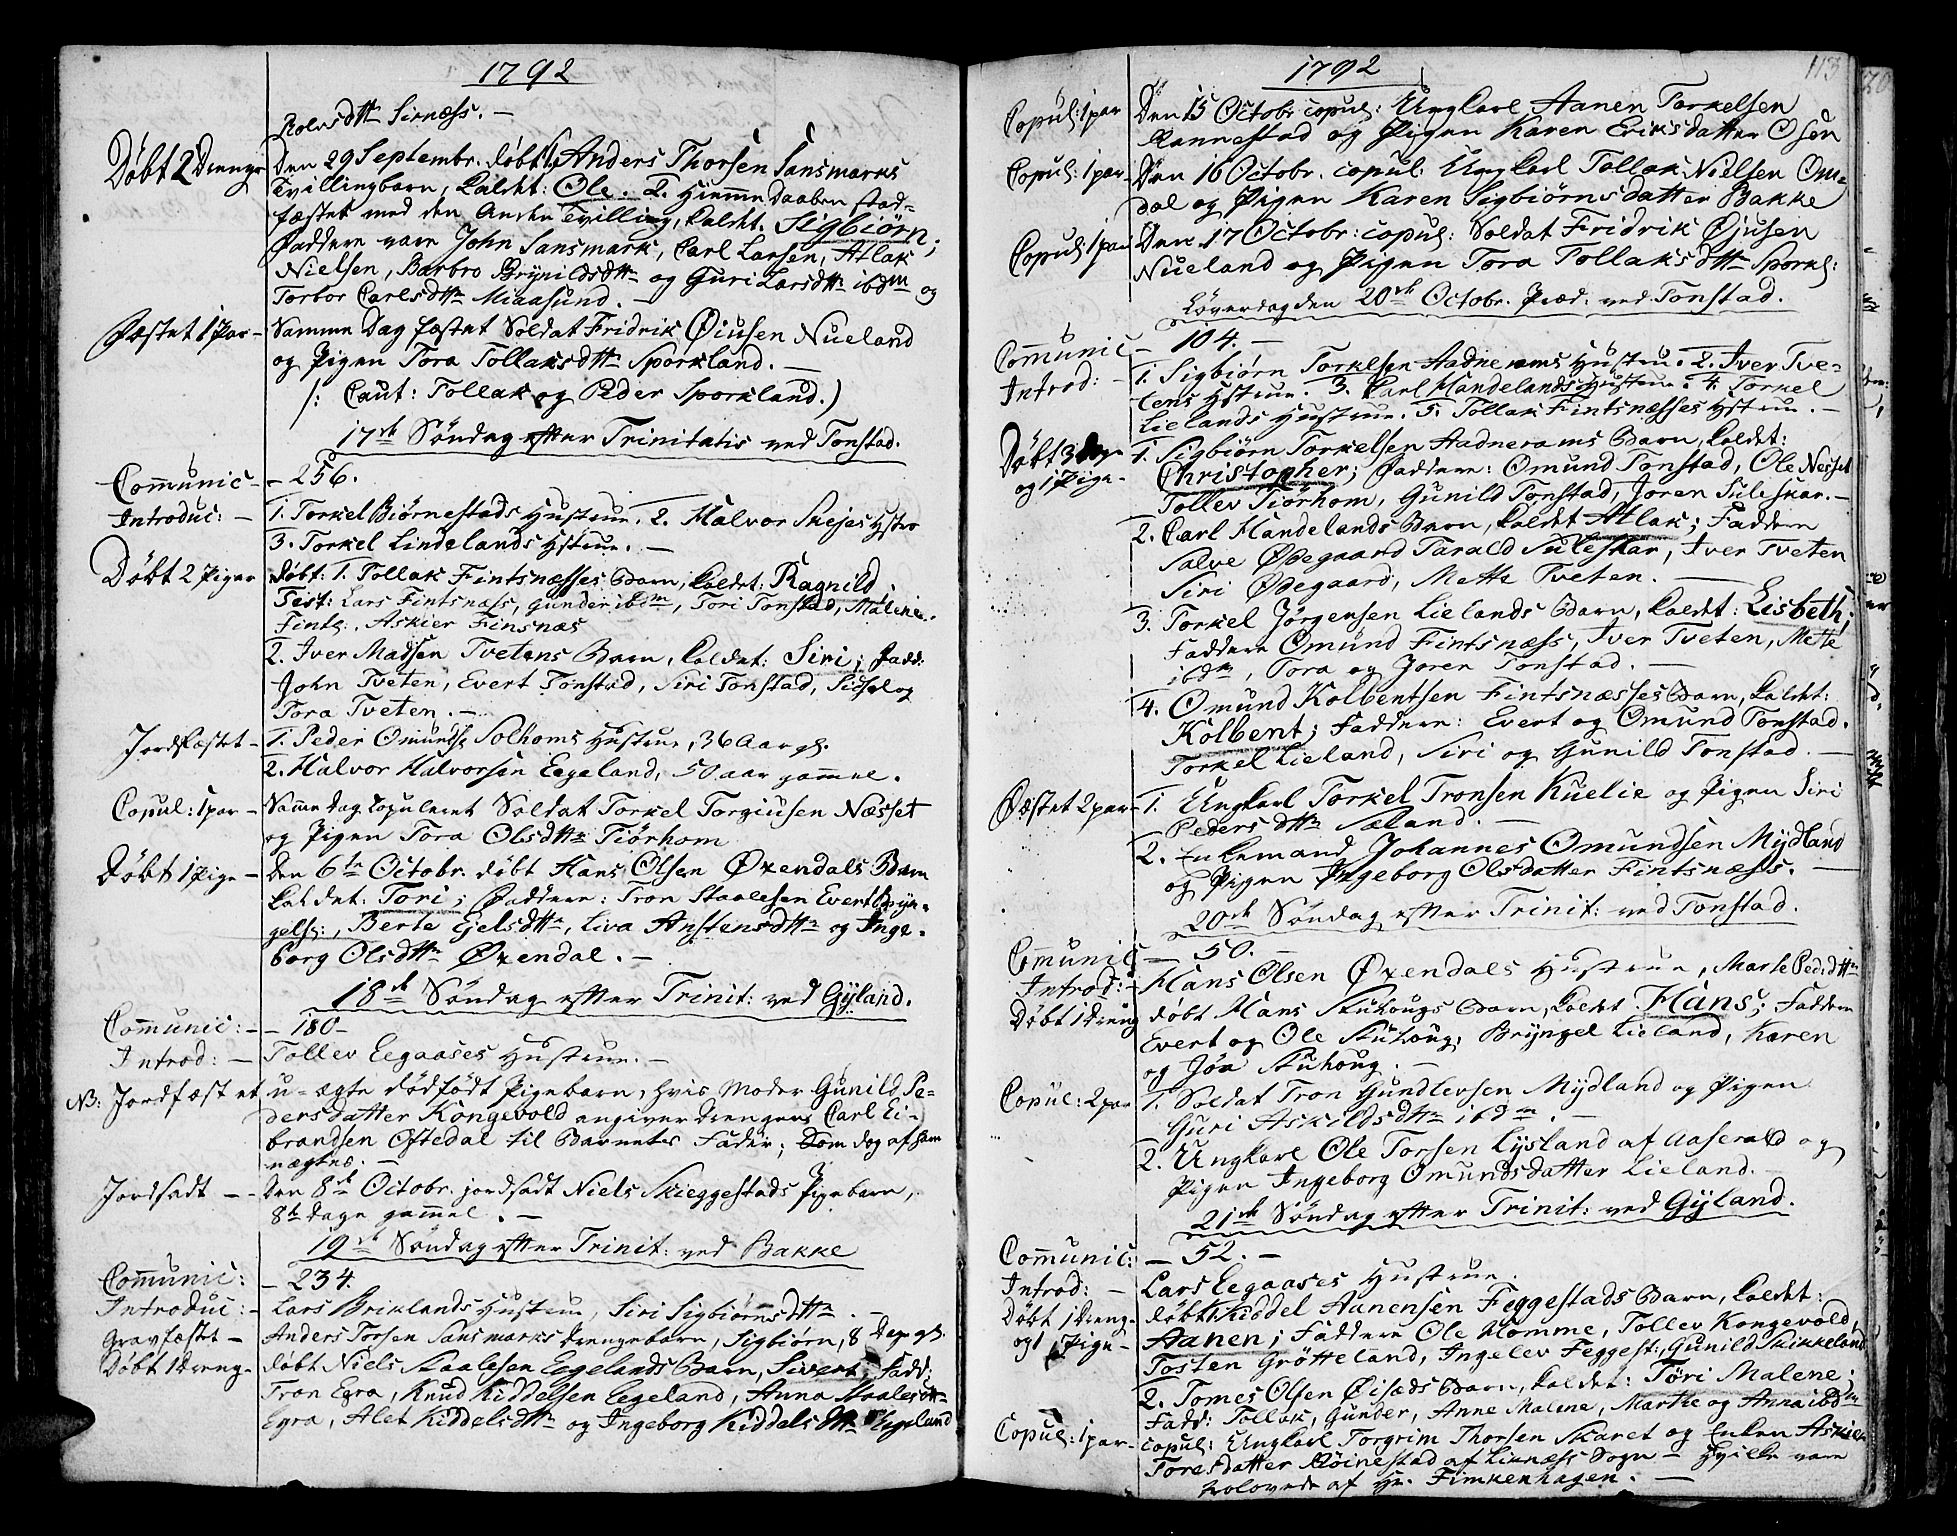 1792
Rolvsdttr Sirnæss. -
Døbt 2 Drenge Den 29 Septembr. døbt 1, Anders Thorsen Sansmarks
Tvillingbarn, kaldet: Ole. 2. Hiemme Daaben stad-
fæstet med den Anden Tvilling, kaldet. Sigbiörn;
Faddere vare John Sansmark, Carl Larsen, Atlak
Nielsen, Barbro Brynildsdttr og Guri Larsdttr ibdm og
Torbor Carlsdttr Miaasund. -
Fæstet 1 Par - Samme Dag fæstet Soldat Fridrik Øiusen Nueland
og Pigen Tora Tollaksdttr Sporkland. -
/: Caut: Tollak og Peder Sporkland.)
17de Søndag efter Trinitatis ved Tonstad.
Comunic - - 256.
Introduc: - 1. Torkel Biörnestads Hustrue. 2. Halvor Skejes Hstro
3. Torkel Lindelands Hstrue. -
Døbt 2 Piger døbt: 1. Tollak Fintsnæsses Barn, kaldet: Ragnild,
Test: Lars Fintsnæss, Gunder ibdm, Tori Tonstad, Malene
Fints:, Askier Finsnæs
2. Iver Madsen Tvetens Barn, kaldet: Siri; Fadd:
John Tveten, Evert Tonstad, Siri Tonstad, Sidsel og
Tora Tveten. -
Jordfæstet - 1. Peder Omunds: Solhoms Hustrue, 36 Aar gl.
2. Halvor Halvorsen Eegeland, 50 aar gammel.
Copul: 1 par - Samme dag copuleret Soldat Torkel Torgiusen Næsset
og Pigen Tora Olsdttr Tiørhom
Døbt 1 Pige - Den 6te Octobr. døbt Hans Olsen Øxendals Barn
kaldet: Tori; Faddere: Tron Staalesen Evert Bryn-
gels:, Berte Ejelsdttr, Liva Anstensdttr og Inge-
borg Olsdttr Øxendal. -
18de Søndag efter Trinit: ved Gyland.
Comunic: - - 180 -
Introd: - Tollev Eegaases Hustrue. -
NB: Jordfæstet u-ægte dødfødt Pigebarn, hvis Moder Gunild Pe-
dersdatter Kongevold angiver Drengen Carl Ei-
brandsen Oftedal til Barnets Fader; Som dog af ham
nægtes. -
Jordsadt - - Den 8de Octobr. jordsadt Niels Skieggestads Pigebarn,
8te Dage gammel. -
19de Søndag efter Trinit: ved Bakke
Comunic: - 234.
Introduc: - Lars Briklands Hustrue, Siri Sigbiörnsdttr -
Gravfæstet - Anders Torsen Sansmarks Drengebarn, Sigbiørn, 8 Dage gl.
Døbt 1 Dreng - døbt Niels Staalesen Eegelands Barn, Sivert; Fadd:
Tron Egra, Knud Kiddelsen Eegeland, Anna Staalesdtr
Egra, Alet Kiddelsdttr og Ingeborg Kiddelsdttr Eegeland
1792
113
Copul: 1 par Den 15 Octobr copul: Ungkarl Aanen Torkelsen
Rannestad og Pigen Karen Eriksdatter Osen
Copul: 1 par - Den 16 Octobr. copul: Ungkarl Tollak Nielsen Om-
dal og Pigen Karen Sigbiörnsdatter Bakke
Copul: 1 par Den 17 Octobr: copul: Soldat Fridrik Øjusen
Nueland og Pigen Tora Tollaksdttr Sporkl:
Løverdagen den 20de Octobr. Præd: ved Tonstad.
Comunic - 104. -
Introd: - 1. Sigbiørn Torkelsen Aadnerams Hustrue. 2. Iver Tve-
tens Hstrue. 3. Carl Handelands Hustrue. 4. Torkel
Lielands Hustrue. 5. Tollak Fintsnæsses Hstrue. -
Døbt 3 Drenge
og 1 Pige - 1. Sigbiørn Torkelsen Aadnerams Barn, kaldet:
Christopher; Faddere: Omund Tonstad, Ole Nesset
Tollev Tiörhom, Gunild Tonstad, Joren Suleskar. -
2. Carl Handelands Barn, kaldet Atlak; Faddere
Salve Ødegaard Tarald Suleskar, Iver Tveten
Siri Ødegaard, Mette Tveten. -
3. Torkel Jørgensen Lielands Barn, kaldet: Lisbeth;
Faddere Omund Fintsnæss, Iver Tveten, Mette
ibdm, Tora og Joren Tonstad. -
4. Omund Kolbentsen Fintsnæsses Barn, kaldet:
Kolbent; Faddere: Evert og Omund Tonstad.
Torkel Lieland, Siri og Gunild Tonstad. -
Fæstet 2 par - 1. Ungkarl Torkel Tronsen Kuelie og Pigen Siri
Pedersdttr Sæland. -
2. Enkemand Johannes Omundsen Mydland
og Pigen Ingeborg Olsdatter Fintsnæss. -
20de Søndag efter Trinit: ved Tonstad.
Comunic - 50. -
Introd: - Hans Olsen Øxendals Hustrue, Marte Ped:dttr
Døbt 1 Dreng døbt Hans Stuhougs Barn, kaldet Hans; Faddere
Evert og Ole Stuhoug, Bryngel Lieland, Karen
og Jøa Stuhoug. -
Copul: 2 par 1. Soldat Tron Gundlevsen Mydland og Pigen
Guri Askildsdttr ibdm. -
2. Ungkarl Ole Torsen Lysland af Aaserald og
Pigen Ingeborg Omundsdatter Lieland. -
21de Søndag efter Trinit: ved Gyland.
Comunic: - 52. -
Introd: - Lars Eegaases Hustrue.
Døbt 1 Dreng - døbt Kiddel Aanensen Feggestads Barn, kaldet:
og 1 Pige - Aanen; Faddere Ole Homme, Tollev Kongevold,
Tosten Grøtteland, Ingelev Feggest:, Gunild Skikkeland
2. Tomes Olsen Øisæds Barn, kaldet: Tori Malene;
Fadd: Tollak, Gunder, Anne Malene, Marthe og Anna ibdm
Copul: 1 par - copul: Ungkarl Torgrim Thorsen Skaret og Enken Askier
Toresdatter Røinestad af Liknæss Sogn - Hvilke vare
trolovede af Hr. Finkenhagen. -